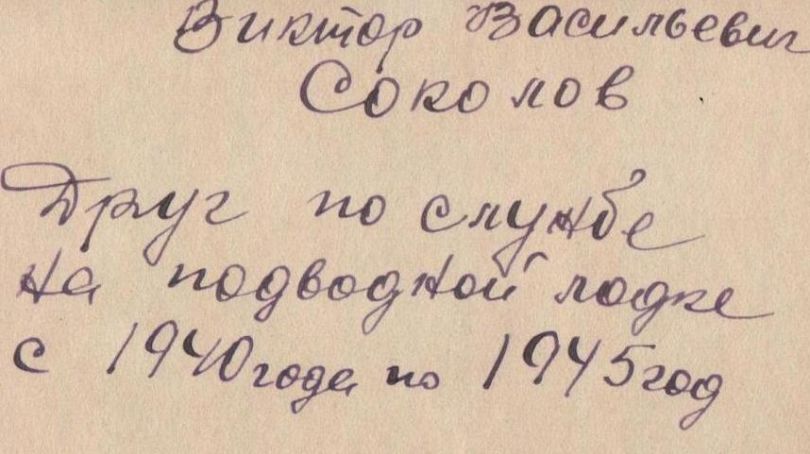 Виктор Васильевич
Соколов
Друг по службе
на подводной лодке
с 1940 года по 1945 год